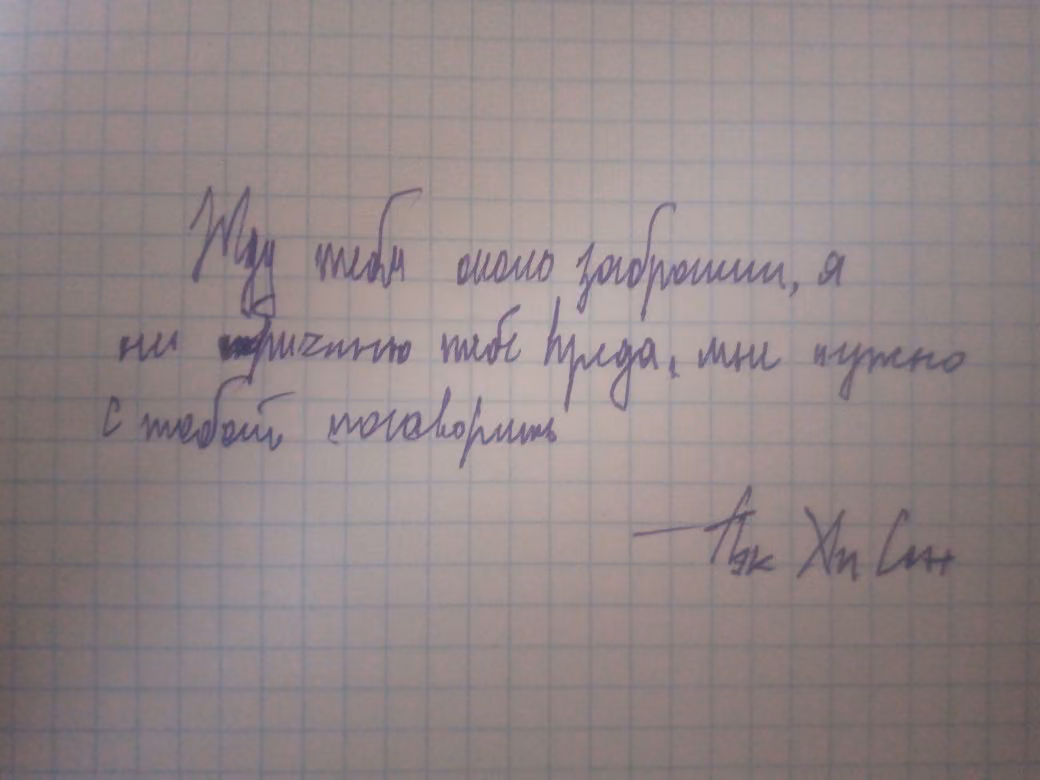 Жду тебя около заброшки, я
не причиню тебе вреда, мне нужно
с тобой поговорить
— Пэк Хи Сон